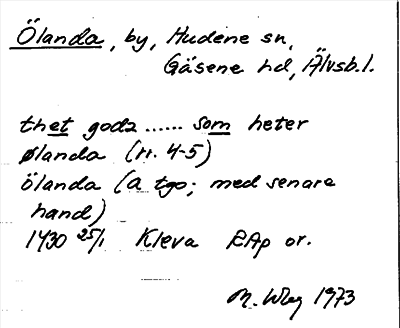 Ölanda, by, Hudene sn,
Gäsene hd, Älvsb.l.
thet godz ...... som heter
ølanda (rr. 4-5)
ölanda (a tgo; med senare
hand)
1430 25/1 Kleva RAp or.
M. Wbg 1973